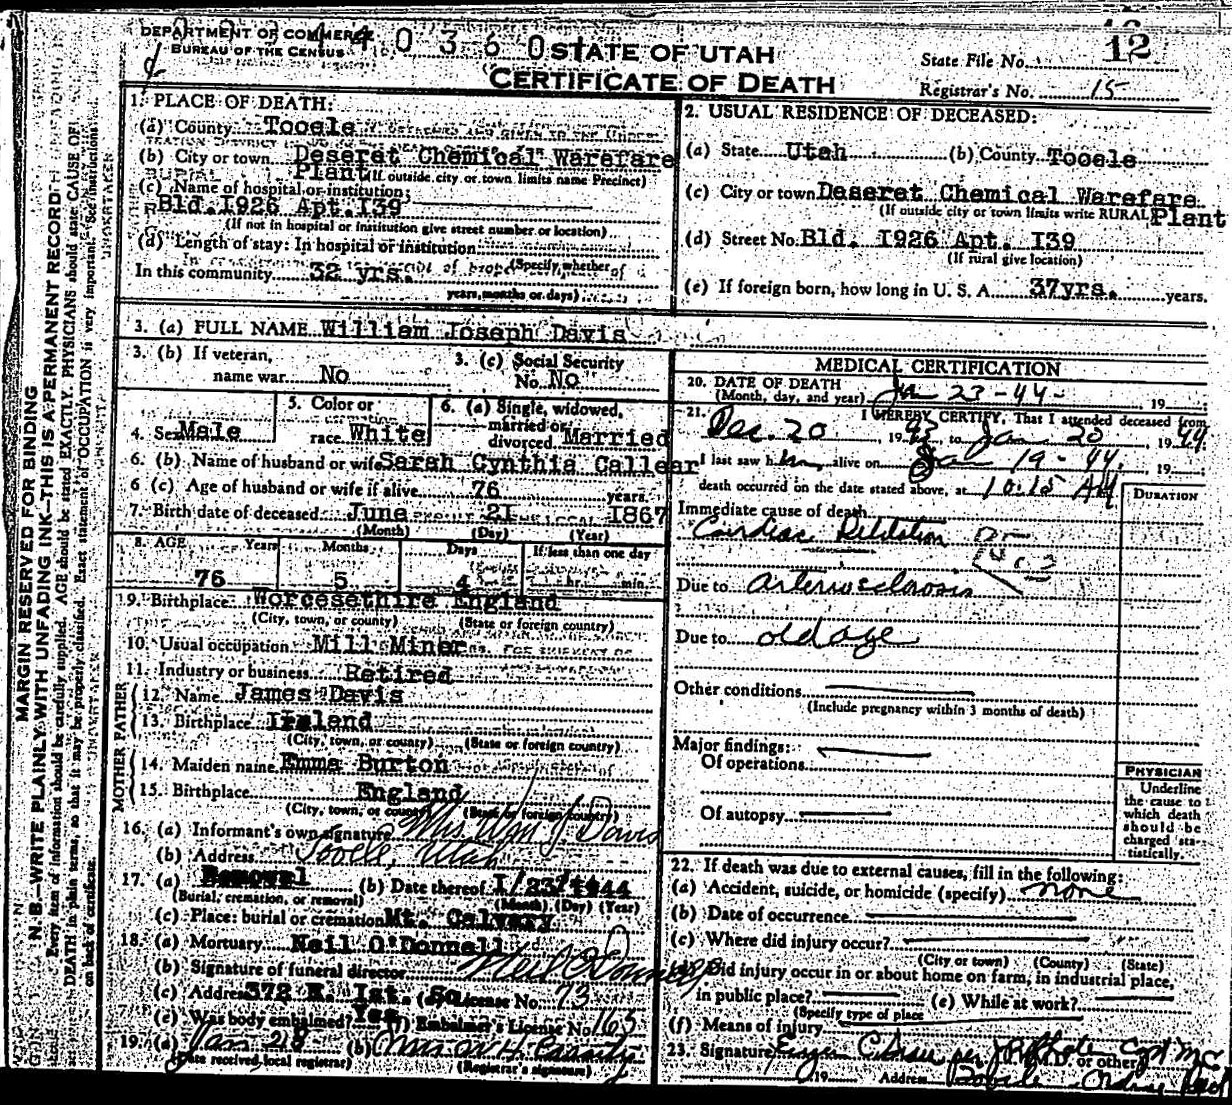 DEPARTMENT OF COMMERCE
BUREAU OF THE CENSUS
STATE OF UTAH
CERTIFICATE OF DEATH
State File No. 12
Registrar's No. 15
1. PLACE OF DEATH:
(a) County Tooele
(b) City or town Deseret Chemical Warefare
Plant (If outside city or town limits name Precinct)
(c) Name of hospital or institution:
Bld. I926 Apt. I39
(If not in hospital or institution give street number or location)
(d) Length of stay: In hospital or institution
(Specify whether
In this community 32 yrs.
years, months or days)
2. USUAL RESIDENCE OF DECEASED:
(a) State Utah (b) County Tooele
(c) City or town Deseret Chemical Warefare
(If outside city or town limits write RURAL) Plant
(d) Street No. Bld. I926 Apt. I39
(If rural give location)
(e) If foreign born, how long in U. S. A. 37yrs. years.
3. (a) FULL NAME William Joseph Davis
3. (b) If veteran,
name war No
3. (c) Social Security
No. No
4. Sex Male
5. Color or
race White
6. (a) Single, widowed,
married or
divorced Married
6. (b) Name of husband or wife Sarah Cynthia Callear
6 (c) Age of husband or wife if alive 76 years.
7. Birth date of deceased June 21 1867
(Month) (Day) (Year)
8. AGE Years Months Days If less than one day
76 5 4 hr. min.
9. Birthplace Worcesethire England
(City, town, or county) (State or foreign country)
10. Usual occupation Mill Miner
11. Industry or business Retired
FATHER
12. Name James Davis
13. Birthplace
(City, town, or county) (State or foreign country)
MOTHER
14. Maiden name Emma Burton
15. Birthplace England
(City, town, or county) (State or foreign country)
16. (a) Informant's own signature Mrs Wm J Davis
(b) Address Tooele, Utah
17. (a) Removal (b) Date thereof I/23/1944
(Burial, cremation, or removal) (Month) (Day) (Year)
(c) Place: burial or cremation Mt. Calvary
18. (a) Mortuary Neil O'Donnell
(b) Signature of funeral director Neil O'Donnell
(c) Address 372 E. Ist. So. License No. 73
(e) Was body embalmed? Yes (f) Embalmer's License No. 165
19. (a) Jan 28 (b) Mrs. W. H. Cassity
(Date received local registrar) (Registrar's signature)
MEDICAL CERTIFICATION
20. DATE OF DEATH
(Month, day, and year) Jan 23-44- 19
21. I HEREBY CERTIFY, That I attended deceased from
Dec. 20, 1943, to Jan 20 1944
I last saw him alive on Jan 19-44, 19
death occurred on the date stated above, at 10:15 AM
DURATION
Immediate cause of death
Cardiac Dilitation
Due to arteriosclerosis
Due to old age
Other conditions
(Include pregnancy within 3 months of death)
Major findings:
Of operations
Of autopsy
PHYSICIAN
Underline
the cause to
which death
should be
charged sta-
tistically.
22. If death was due to external causes, fill in the following:
(a) Accident, suicide, or homicide (specify) none
(b) Date of occurrence
(c) Where did injury occur?
(City or town) (County) (State)
Did injury occur in or about home on farm, in industrial place,
in public place? (e) While at work?
(Specify type of place
(f) Means of injury
23. Signature M.D. or other
19 Address
MARGIN RESERVED FOR BINDING
N. B.—WRITE PLAINLY WITH UNFADING INK—THIS IS A PERMANENT RECORD
Every item of information should be carefully supplied. AGE should be stated EXACTLY. PHYSICIANS should state CAUSE OF
DEATH in plain terms, so that it may be properly classified. Exact statement of OCCUPATION is very important. See instructions
on back of certificate.